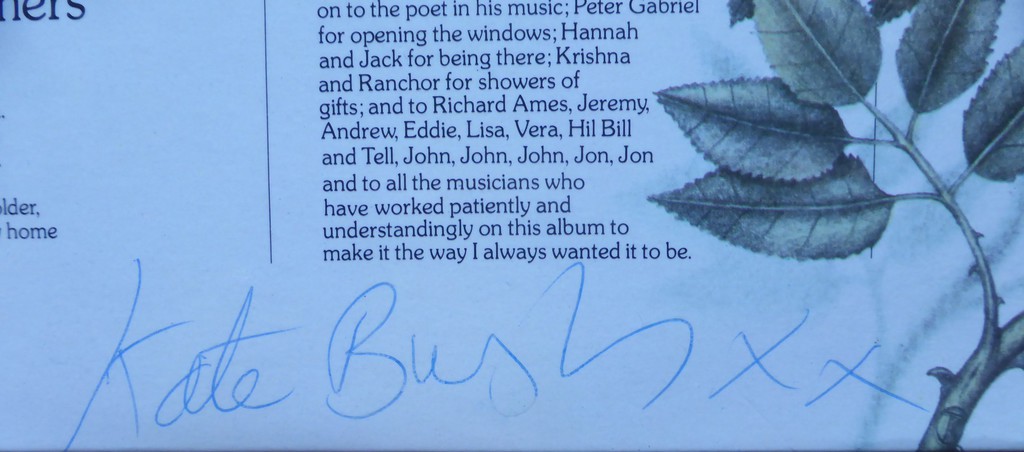 ners
on to the poet in his music; Peter Gabriel
for opening the windows; Hannah
and Jack for being there; Krishna
and Ranchor for showers of
gifts; and to Richard Ames, Jeremy,
Andrew, Eddie, Lisa, Vera, Hil Bill
and Tell, John, John, John, Jon, Jon
and to all the musicians who
have worked patiently and
understandingly on this album to
make it the way I always wanted it to be.
older,
home
Kate Bush xx